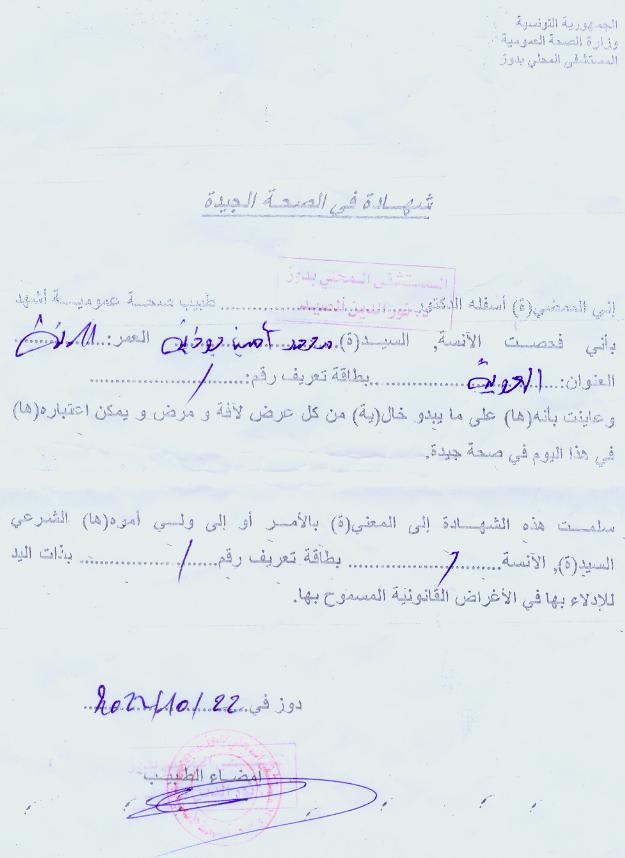 الجمهورية التونسية
وزارة الصحة العمومية
المستشفى المحلي بدوز
شهادة في الصحة الجيدة
المستشفى المحلي بدوز
إني الممضي(ة) أسفله الدكتور........................ طبيب صحة عمومية أشهد
بأني فحصت الآنسة, السيد(ة).محمد أمين العمر:
العنوان:.................بطاقة تعريف رقم:........../..........
و عاينت بأنه(ها) على ما يبدو خال(ية) من كل عرض لآفة و مرض و يمكن اعتباره(ها)
في هذا اليوم في صحة جيدة.
سلمت هذه الشهادة إلى المعني(ة) بالأمر أو إلى ولي أموه(ها) الشرعي
السيد(ة), الآنسة........./.......... بطاقة تعريف رقم......./............ بذات اليد
للإدلاء بها في الأغراض القانونية المسموح بها.
دوز في 2022/10/22
امضاء الطبيب